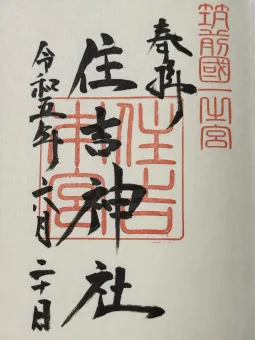 筑前國一之宮
奉拝
住吉神社
住吉
本宮
令和五年六月二十日